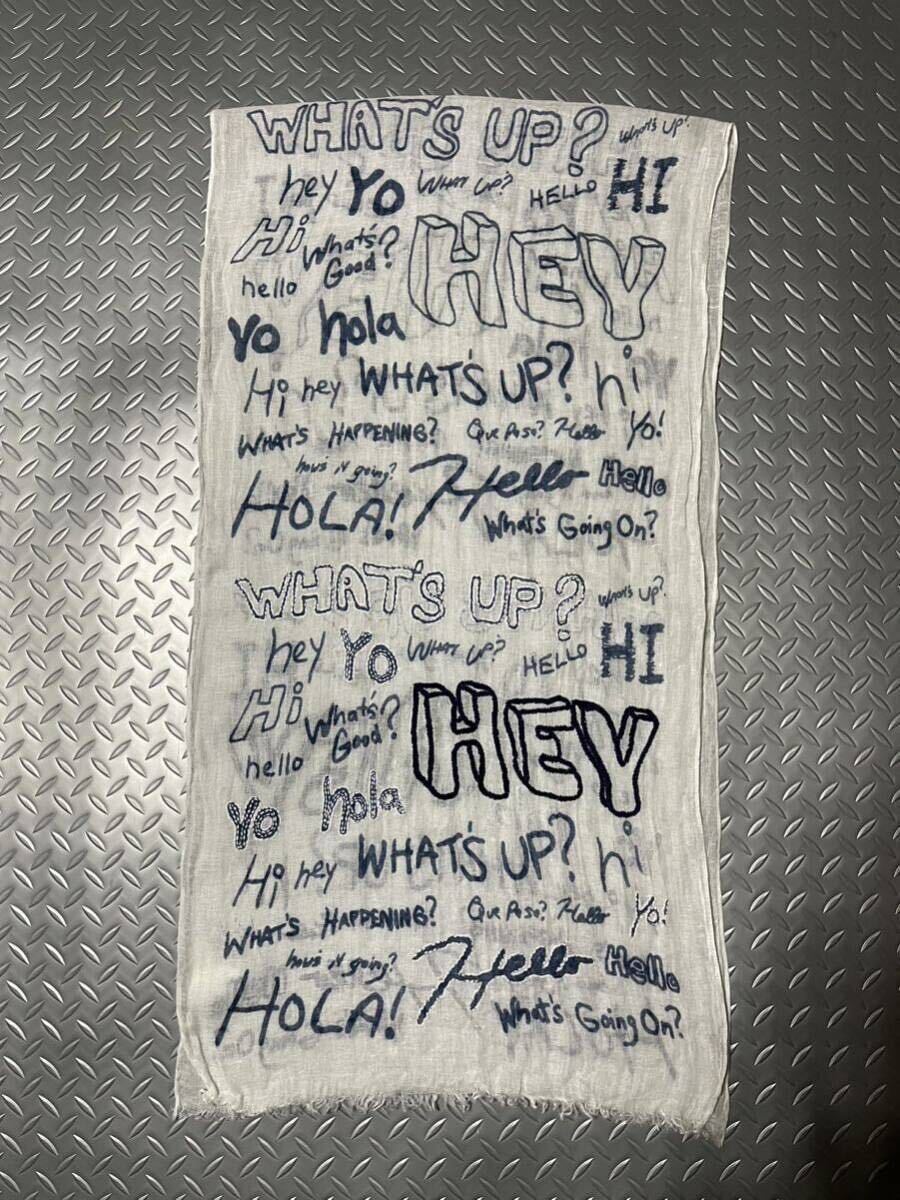 WHAT'S UP? What's UP?
hey Yo WHAT UP? HELLO HI
Hi What's Good? HEY
hello
Yo hola
Hi hey WHAT'S UP? hi
WHAT'S HAPPENING? Que Paso? Hello Yo!
how's it going?
HOLA! Hello Hello
What's Going On?
WHAT'S UP? What's UP?
hey Yo WHAT UP? HELLO HI
Hi What's Good? HEY
hello
Yo hola
Hi hey WHAT'S UP? hi
WHAT'S HAPPENING? Que Paso? Hello Yo!
how's it going?
HOLA! Hello Hello
What's Going On?